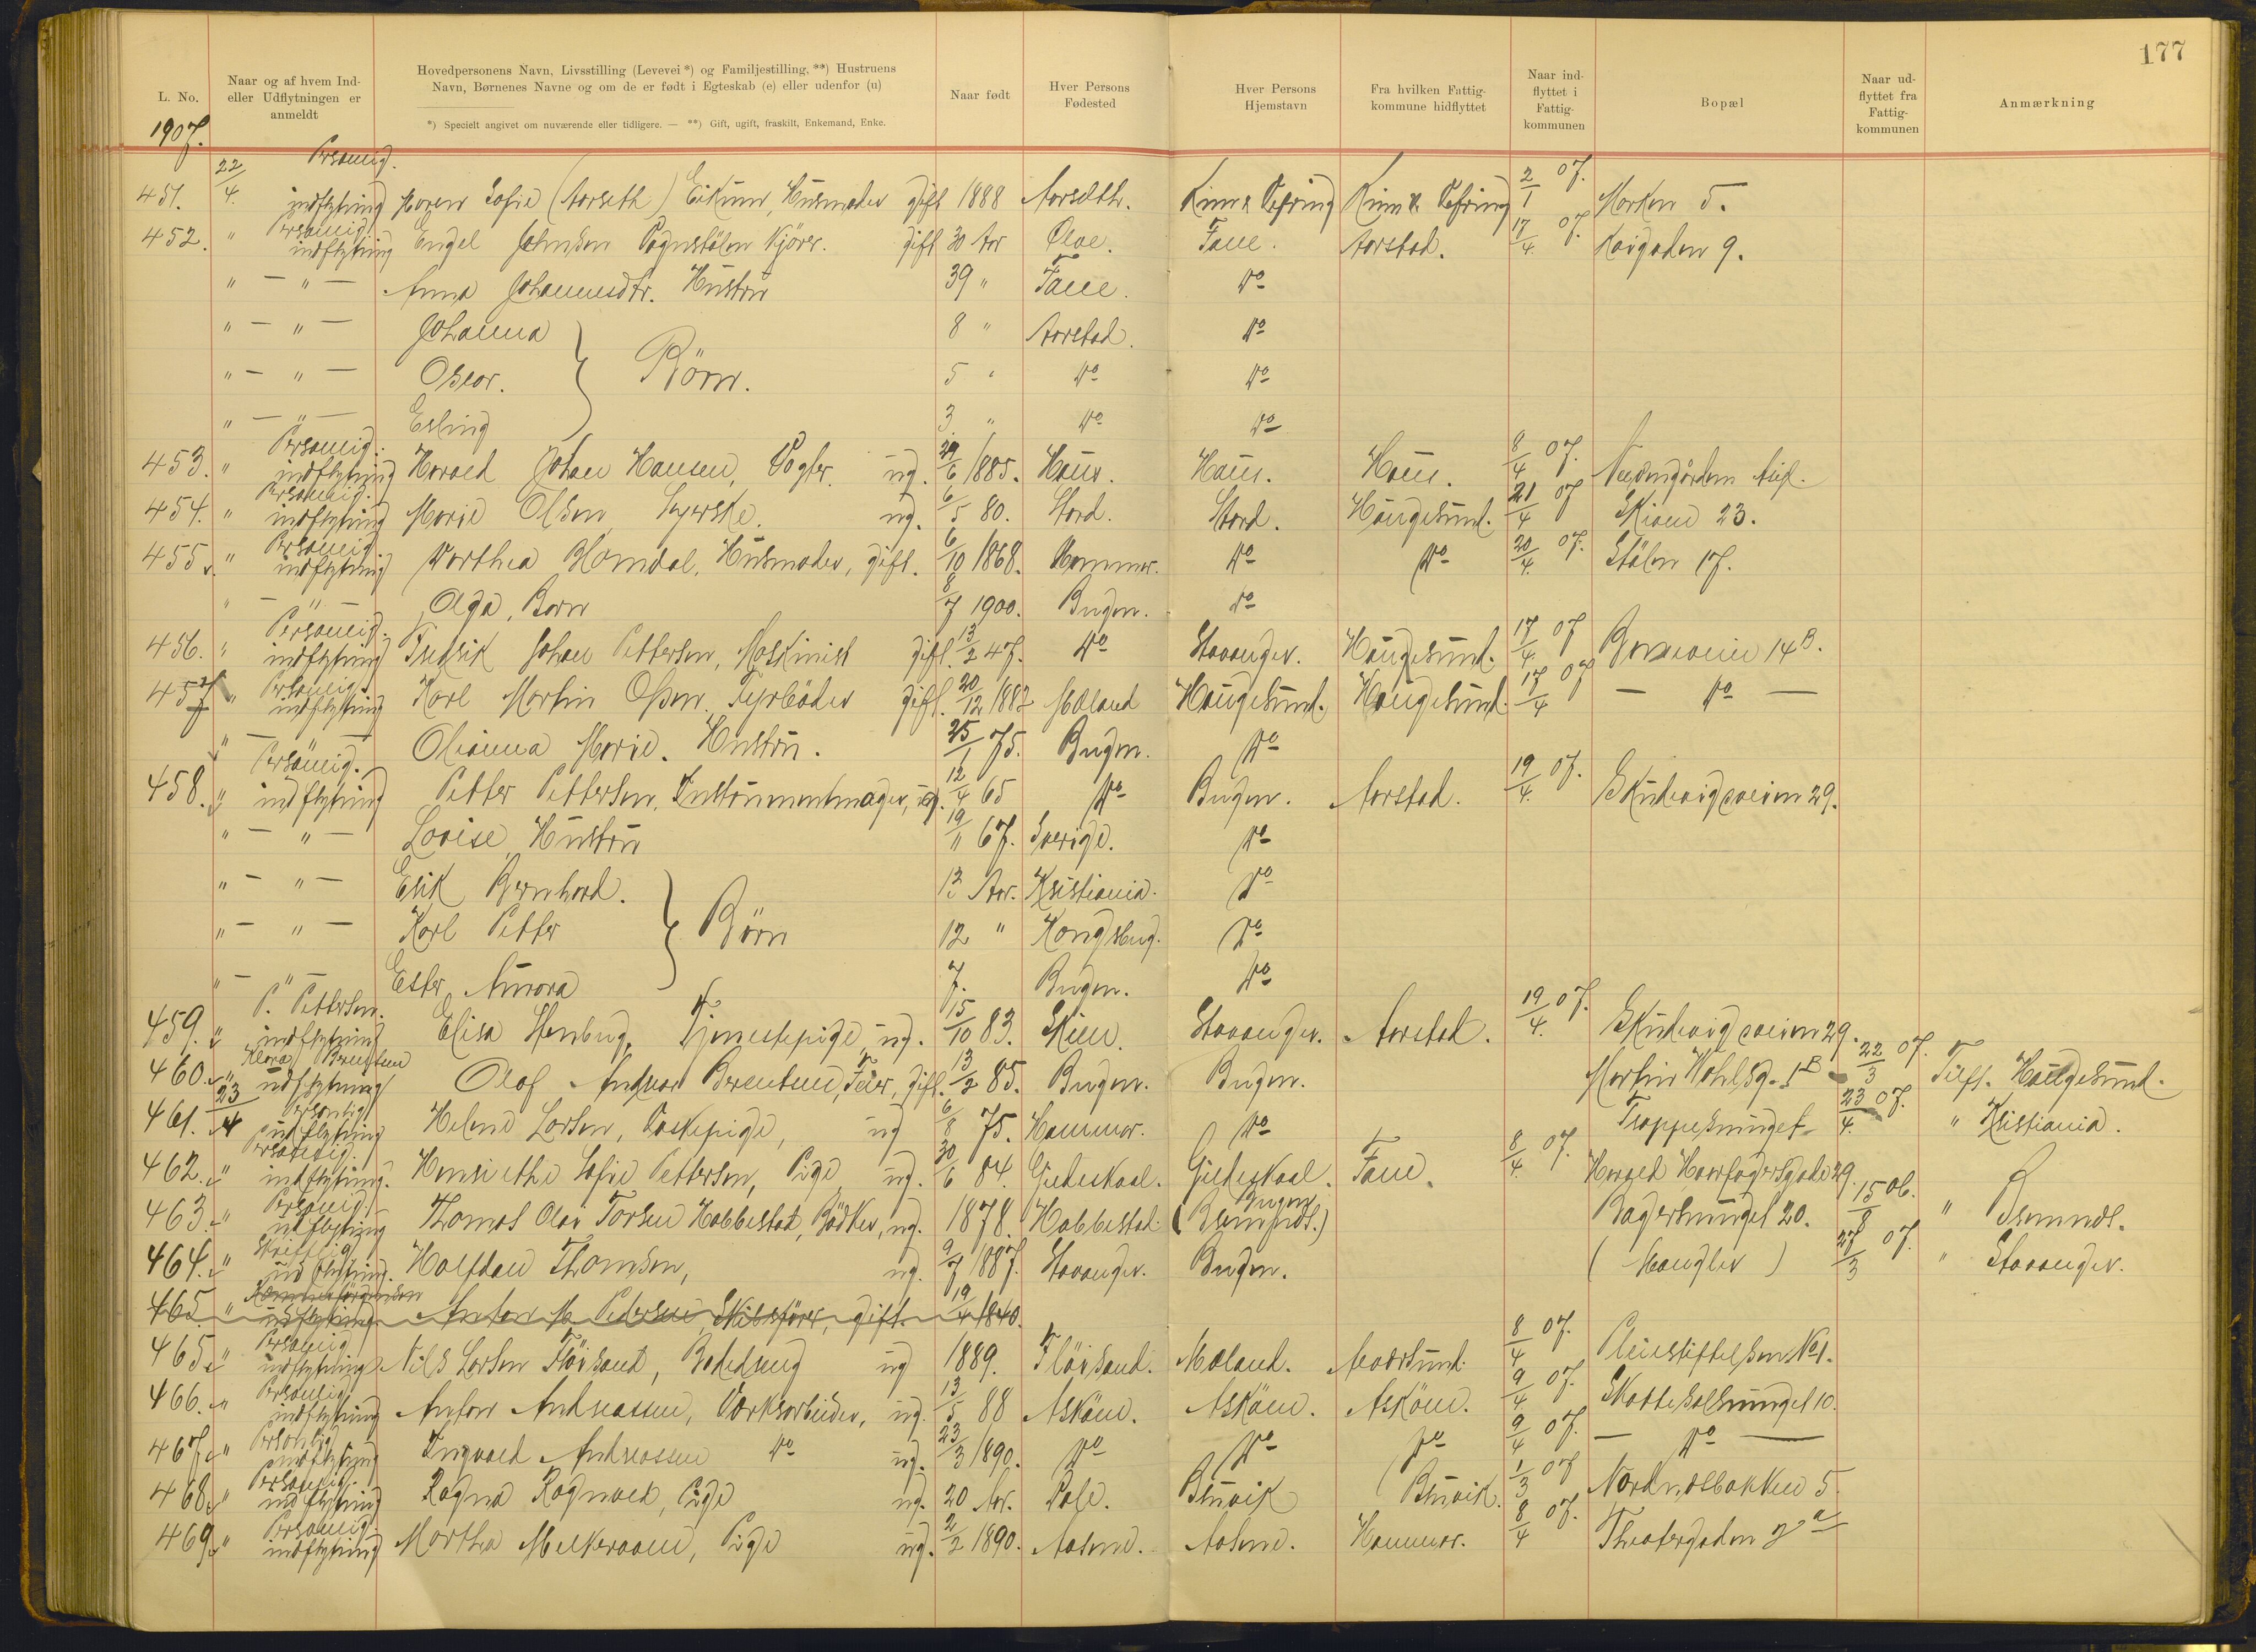 177
L. No.
Naar og af hvem Ind- eller Udflytningen er anmeldt
Hovedpersonens Navn, Livsstilling (Levevei *) og Familjestilling, **) Hustruens Navn, Børnenes Navne og om de er født i Egteskab (e) eller udenfor (u)
*) Specielt angivet om nuværende eller tidligere. — **) Gift, ugift, fraskilt, Enkemand, Enke.
Naar født
Hver Persons Fødested
Hver Persons Hjemstavn
Fra hvilken Fattig- kommune hidflyttet
Naar ind- flyttet i Fattig- kommunen
Bopæl
Naar ud- flyttet fra Fattig- kommunen
Anmærkning
1907.
451. 22/4. Personlig. indflytning Maren Sofie (Aarseth) Eikum, Husmoder gift 1888 Aarseth. 2/1 07. Marken 5.
452. " Personlig indflytning Engel Johnsen Vognstølen Kjører. gift 30 Aar Fane. Aarstad. 17/4. 07. Kaigaden 9.
" — " — Anna Johannesdtr. Hustru 39 " Fane. Do
" — " — Johanna 8 " Aarstad. Do
" — " — Oscar. } Børn. 5 " Do Do
" — " — Erling 3 " Do Do
453. " Personlig. indflytning Harald Johan Hansen, ug. 29/6 1885. Haus. Haus. Haus. 8/4 07.
454. " Personlig. indflytning Marie Olsen, Syerske. ug. 6/5 80. Stord. Stord. Haugesund. 21/4 07 Skiven 23.
455. " Personlig. indflytning Dorthea Homdal, Husmoder, gift. 6/10 1868. Hammer. Do Do 20/4. 07. Stølen 17.
" — " — Olga, Barn 8/7 1900. Bergen. Do
456. " Personlig. indflytning Fredrik Johan Pettersen, Maskinist gift. 13/2 47. Do Stavanger. Haugesund. 17/4. 07 14 B.
457 " Personlig. indflytning Karl Martin Olsen. Fyrbøder gift. 20/12 1882 Haugesund. Haugesund. 17/4 07 — Do —
" — Olianna Marie. Hustru. 25/1 75. Bergen. Do
458. " Personlig. indflytning Petter Pettersen, Instrumentmager, 12/4 65 Do Bergen. Aarstad. 19/4. 07. Skuteviqsveien 29.
" — " — Lovise Hustru 19/11 67. Sverige. Do
" — " — Erik Bernhard. 13 Aar. Kristiania. Do
" — " — Karl Petter } Børn 12 " Kongsberg. Do
" — " — Ester Aurora 7. Bergen. Do
459. " P. Pettersen. indflytning Elisa Stenberg, Tjenestepige ug. 15/10 83. Skien. Stavanger. Aarstad. 19/4. 07. Skutevigsveien 29.
460. " Klara Berentsen udflytning Olaf Andreas Berentsen, gift. 13/2 85. Bergen. Bergen. Martin Wahlsg. 1 B 22/3 07. Tilfl. Haugesund.
461. 23/4 Personlig udflytning Helene Larsen, Vaskepige, ug 6/8 75. Hammer. Do Trappesmuget 23/4. 07. " Kristiania.
462. " Personlig. indflytning. Henriette Sofie Pettersen, Pige ug. 30/6 84. Gildeskaal. Gildeskaal. Fane. 8/4. 07. Harald Haarfagersgade 29.
463. " Personlig. udflytning Thomas Olai Torsen Habbestad, Bødker, ug. 1878. Habbestad. Bergen (Bremnæs.) Bagersmuget 20. 15/8 06. " Bremnæs.
464. " Skriftlig udflytning. Halfdan Thomsen, ug. 9/7 1887. Stavanger. Bergen. (Mangler) 27/3 07. " Stavanger.
465. " udflytning Anton M. Pedersen, Skibsfører, gift 19/4 1840.
465. " Personlig indflytning Nils Larsen Fløisand, Bødedreng ug 1889. Fløisand. Mæland. Alversund. 8/4 07. Pleiestiftelsen No 1.
466. " Personlig. indflytning Anton Andreassen, Værksarbeider, ug. 13/5 88 Askøen. Askøen. Askøen. 9/4 07. Skottesalsmuget 10.
467. " Personlig indflytning Ingvald Andreassen Do ug. 23/3 1890. Do Do Do 9/4 07. — Do —
468. " Personlig. indflytning Ragna Ragnvald, Pige ug. 20 Aar. Bruvik Bruvik. 1/3 07 Nordnæsbakken 5.
469. " Personlig. indflytning Martha Melkeraaen, Pige ug. 2/2 1890. Aasene. Aasene. Hammer. 8/4 07. Theatergaden 7 a